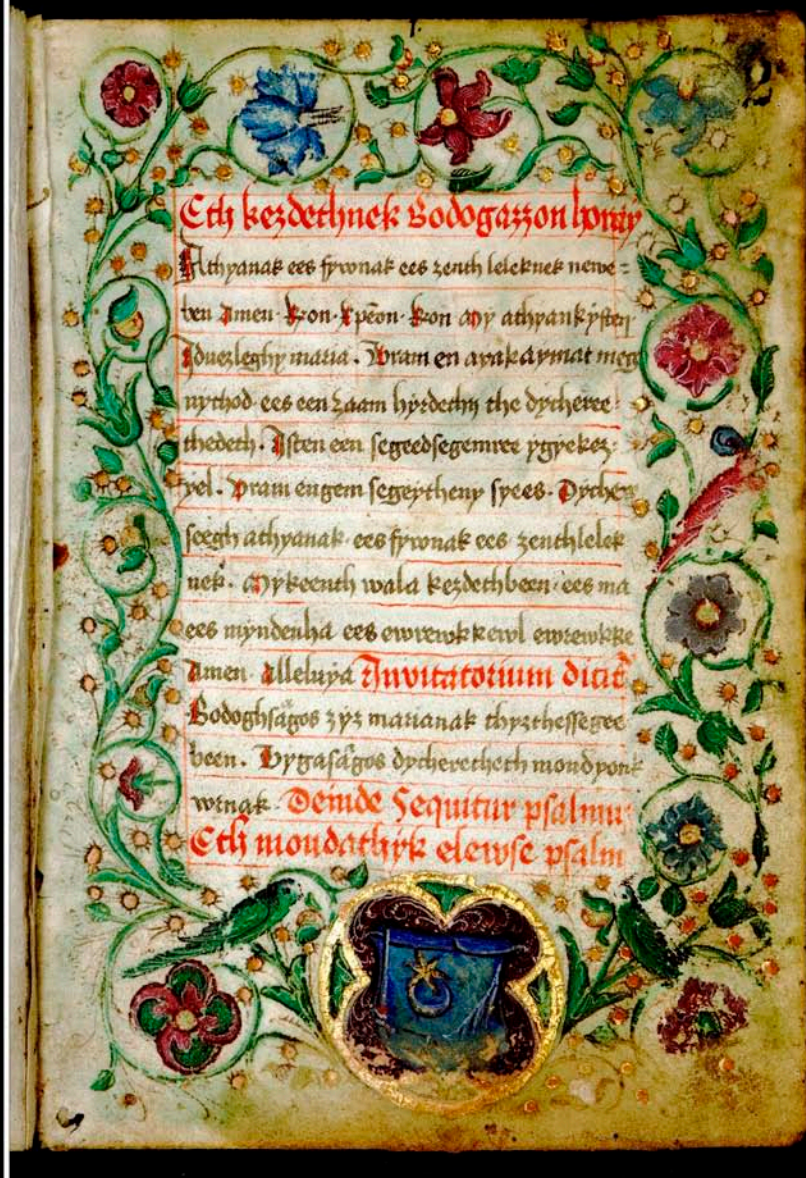 Eth kezdethnek Bodogazzon hóray
Athyanak ees fywnak ees zenth leleknek newe=
ben Amen. kyon. xpēon. kyon My athyank ýsten
Iduezleghy maria. Vram en ayakaymat meg
nythod ees een zaam hyrdethy the dycheree
thedeth. Isten een segeedsegemree ygyekez
yel. Vram engem segeytheny syees. Dychew
seegh athyanak ees fywnak ees zenthlelek
nek. Mykeenth wala kezdethbeen ees ma
ees myndenha ees ewrewkkewl ewrewkke
Amen. Alleluya Invitatorium dicit͛
Bodoghsagos zýz marianak thyzthessegee
been. Vygasagos dycherethech mondyonk
wrnak. Deinde sequitur psalmus
Eth mondathýk elewse psalm